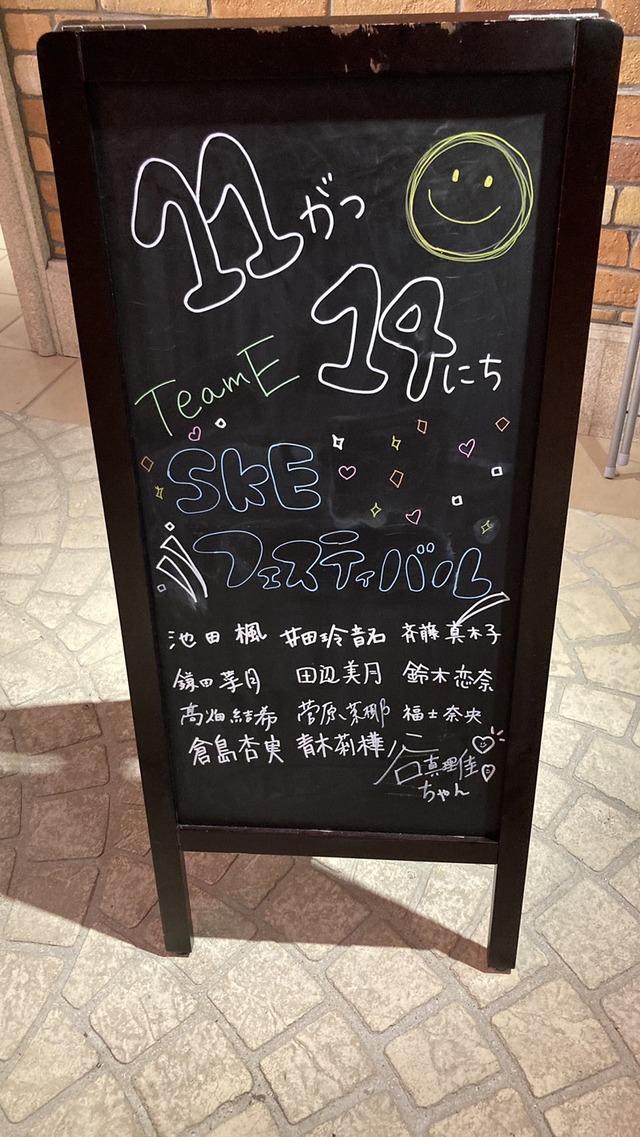 11がつ
14にち
TeamE
SKE
フェスティバル
池田楓 井田玲音名 斉藤真木子
鎌田菜月 田辺美月 鈴木恋奈
髙畑結希 菅原茉椰 福士奈央
倉島杏実 青木莉樺 谷真理佳
ちゃん